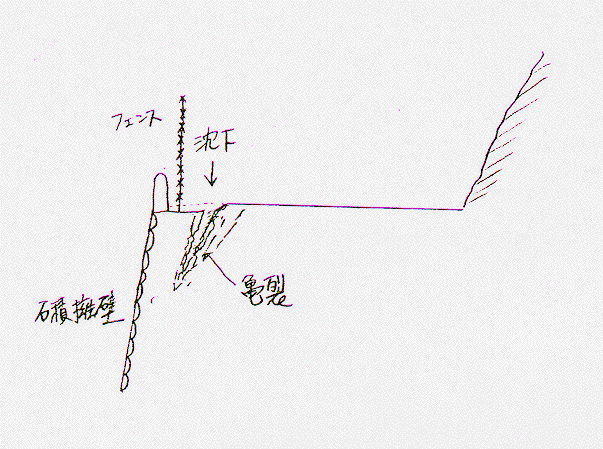 フェンス
沈下
亀裂
石積擁壁